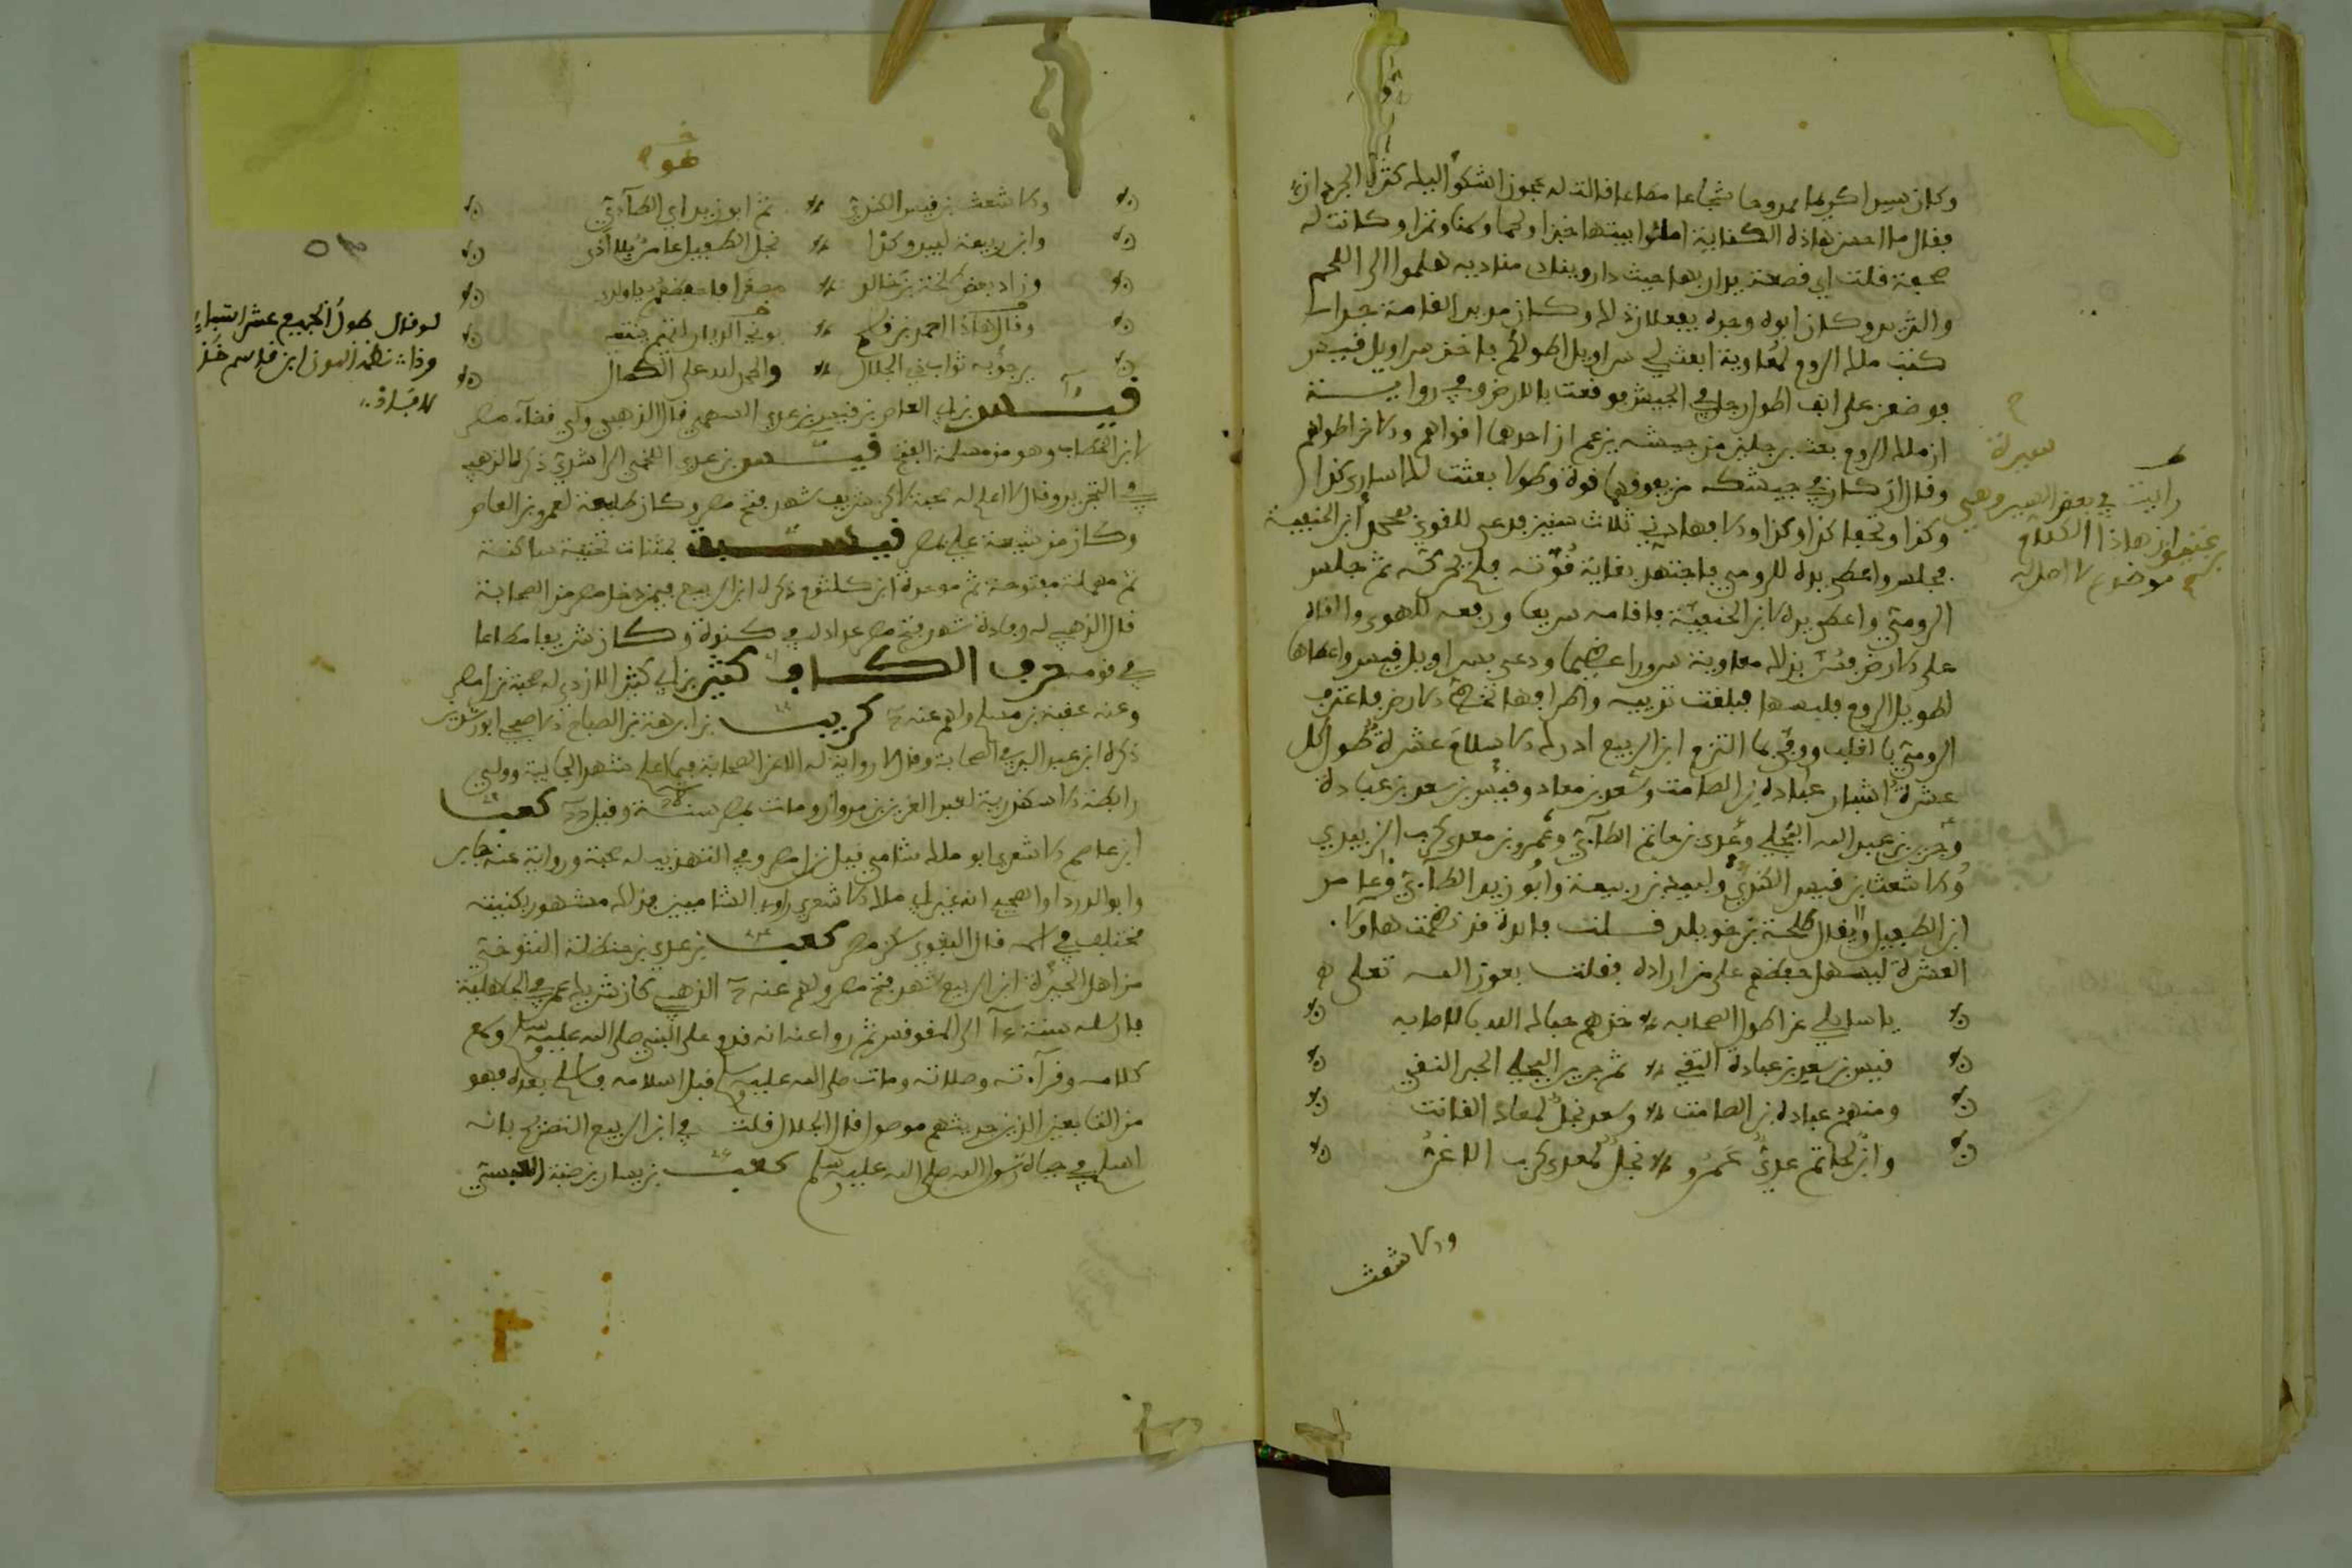 وكان سيدا كريما ممدوحا شجاعا مطاعا قالت له عجوز اشكوا اليك
فقال ما احسن هاذه الكناية املئوا بيتها خبزا ولحما وسمنا وتمرا وكانت له
صحفة قلت اي قصعة يدار بها حيث دار وينادي مناديه هلموا الى اللحم
والثريد وكان ابوه وجده يفعلان ذلك وكان مديد القامة جدا
كتب ملك الروم لمعاوية ابعث لي سراويل اطولكم فاخذ سراويل قيس
فوضعن على انف اطول رجل في الجيش فوقعت بالارض وفي رواية
ان ملك الروم بعث برجلين من جيشه يزعم ان احدهما اقواهم والاخر اطولهم
وقال ان كان في جيشك من يفوقهما قوة وطولا بعثت لك اسارى كذا
وكذا وتحفا كذا وكذا والا فهادني ثلاث سنين فدعى للقوي محمد ابن الحنفية
فجلس واعطى يده للرومي فاجتهد بغاية قوته فلم يحركه ثم جلس
الرومي واعطى يده لابن الحنفية فاقامه سريعا ورفعه للهوى والقاه
على الارض فسر بذلك معاوية سرورا عظيما ودعى بسراويل قيس واعطاها
لطويل الروم فلبسها فبلغت ثدييه واطرافها تخط الارض فاعترف
الرومي بالغلب ووفى بما التزم ابن الربيع ادرك الاسلام عشرة طول كل
عشرة اشبار عبادة بن الصامت وسعد بن معاذ وقيس بن سعد بن عبادة
وجرير بن عبد الله البجلي وعدي بن حاتم الطآئي وعمرو بن معدي كرب الزبيدي
والاشعث بن قيس الكندي ولبيد بن ربيعة وابو زيد الطآئي وعامر
ابن الطفيل ويقال طلحة بن خويلد قلت فائدة قد نظمت هاولا
العشرة ليسهل حفظهم على من اراده فقلت بعون الله تعلى
يا سايلي عن اطول الصحابه خذهم حباك الله بالاصابه
قيس بن سعد بن عبادة التقي ثم جرير البجلي الحبر النقي
ومنهم عبادة بن الصامت وسعد نجل لمعاذ القانت
وابن لحاتم عدي عمرو نجل لمعدي كرب الاغر
والاشعث
رايت في بعض السير وهي سيرة
ان هاذا الكلام
موضوع لا اصل له
والاشعث بن قيس الكندي ثم ابو زيد اي الطآئي
وابن ربيعة لبيد وكذا نجل الطفيل عامر بلا اذى
وزاد بعض طلحة بن خالد فاحفظهم يا والد
وقال هاذا احمد بن قاسم
يرجو به ثواب ذي الجلال والحمد لله على الكمال
قيس بن ابي العاص بن قيس بن عدي السهمي قال الذهبي ولي قضآء مصر
لابن الخطاب وهو من مسلمة الفتح قيس بن عدي اللخمي الراشدي ذكره الذهبي
في التجريد وقال لا اعلم له صحبة لاكن شريف شهد فتح مصر وكان طليعة لعمرو بن العاص
وكان من شيعة علي بمصر قيسبة بمثنات تحتية ساكنة
ثم مهملة مفتوحة ثم موحدة ابن كلثوم ذكره ابن الربيع فيمن دخل مصر من الصحابة
قال الذهبي له وفادة شهد فتح مصر عداده في كندة وكان شريفا مطاعا
في قومه حرف الكاف كثير بن ابي كثير الازدي له صحبة نزل مصر
وعنه عقبة بن مسلم ولهم عنه كريب بن ابرهة بن الصباح الاصبحي ابو رشدين
ذكره ابن عبد البر في الصحابة وقال لا رواية له الا عن الصحابة فيما اعلم شهد الجابية وولي
رابطة الاسكندرية لعبد العزيز بن مروان ومات بمصر سنة وقيل كعب
ابن عاصم الاشعري ابو مالك شامي قيل نزل مصر وفي التهذيب له صحبة ورواية عنه جابر
وابو الدردا والصحيح انه غير ابي مالك الاشعري راوي الشاميين فذاك مشهور بكنيته
مختلف في اسمه قال البغوي سكن مصر كعب بن عدي بن حنظلة التنوخي
من اهل الحيرة ابن الربيع شهد فتح مصر ولهم عنه الذهبي كان شريك عمر في الجاهلية
فارسله سنة الى المقوقس ثم روا عنه انه قدم على النبي صلى الله عليه وسلم وسمع
كلامه وقرآءته وصلاته ومات صلى الله عليه وسلم قبل اسلامه فاسلم بعده فهو
من التابعين الذين حديثهم موصول قال الجلال قلت في ابن الربيع التصريح بانه
اسلم في حياة رسول الله صلى الله عليه وسلم كعب بن يسار بن ضبة العبسي
لو قال طول الجميع عشر اشبار
وذا نظمه ابن قاسم